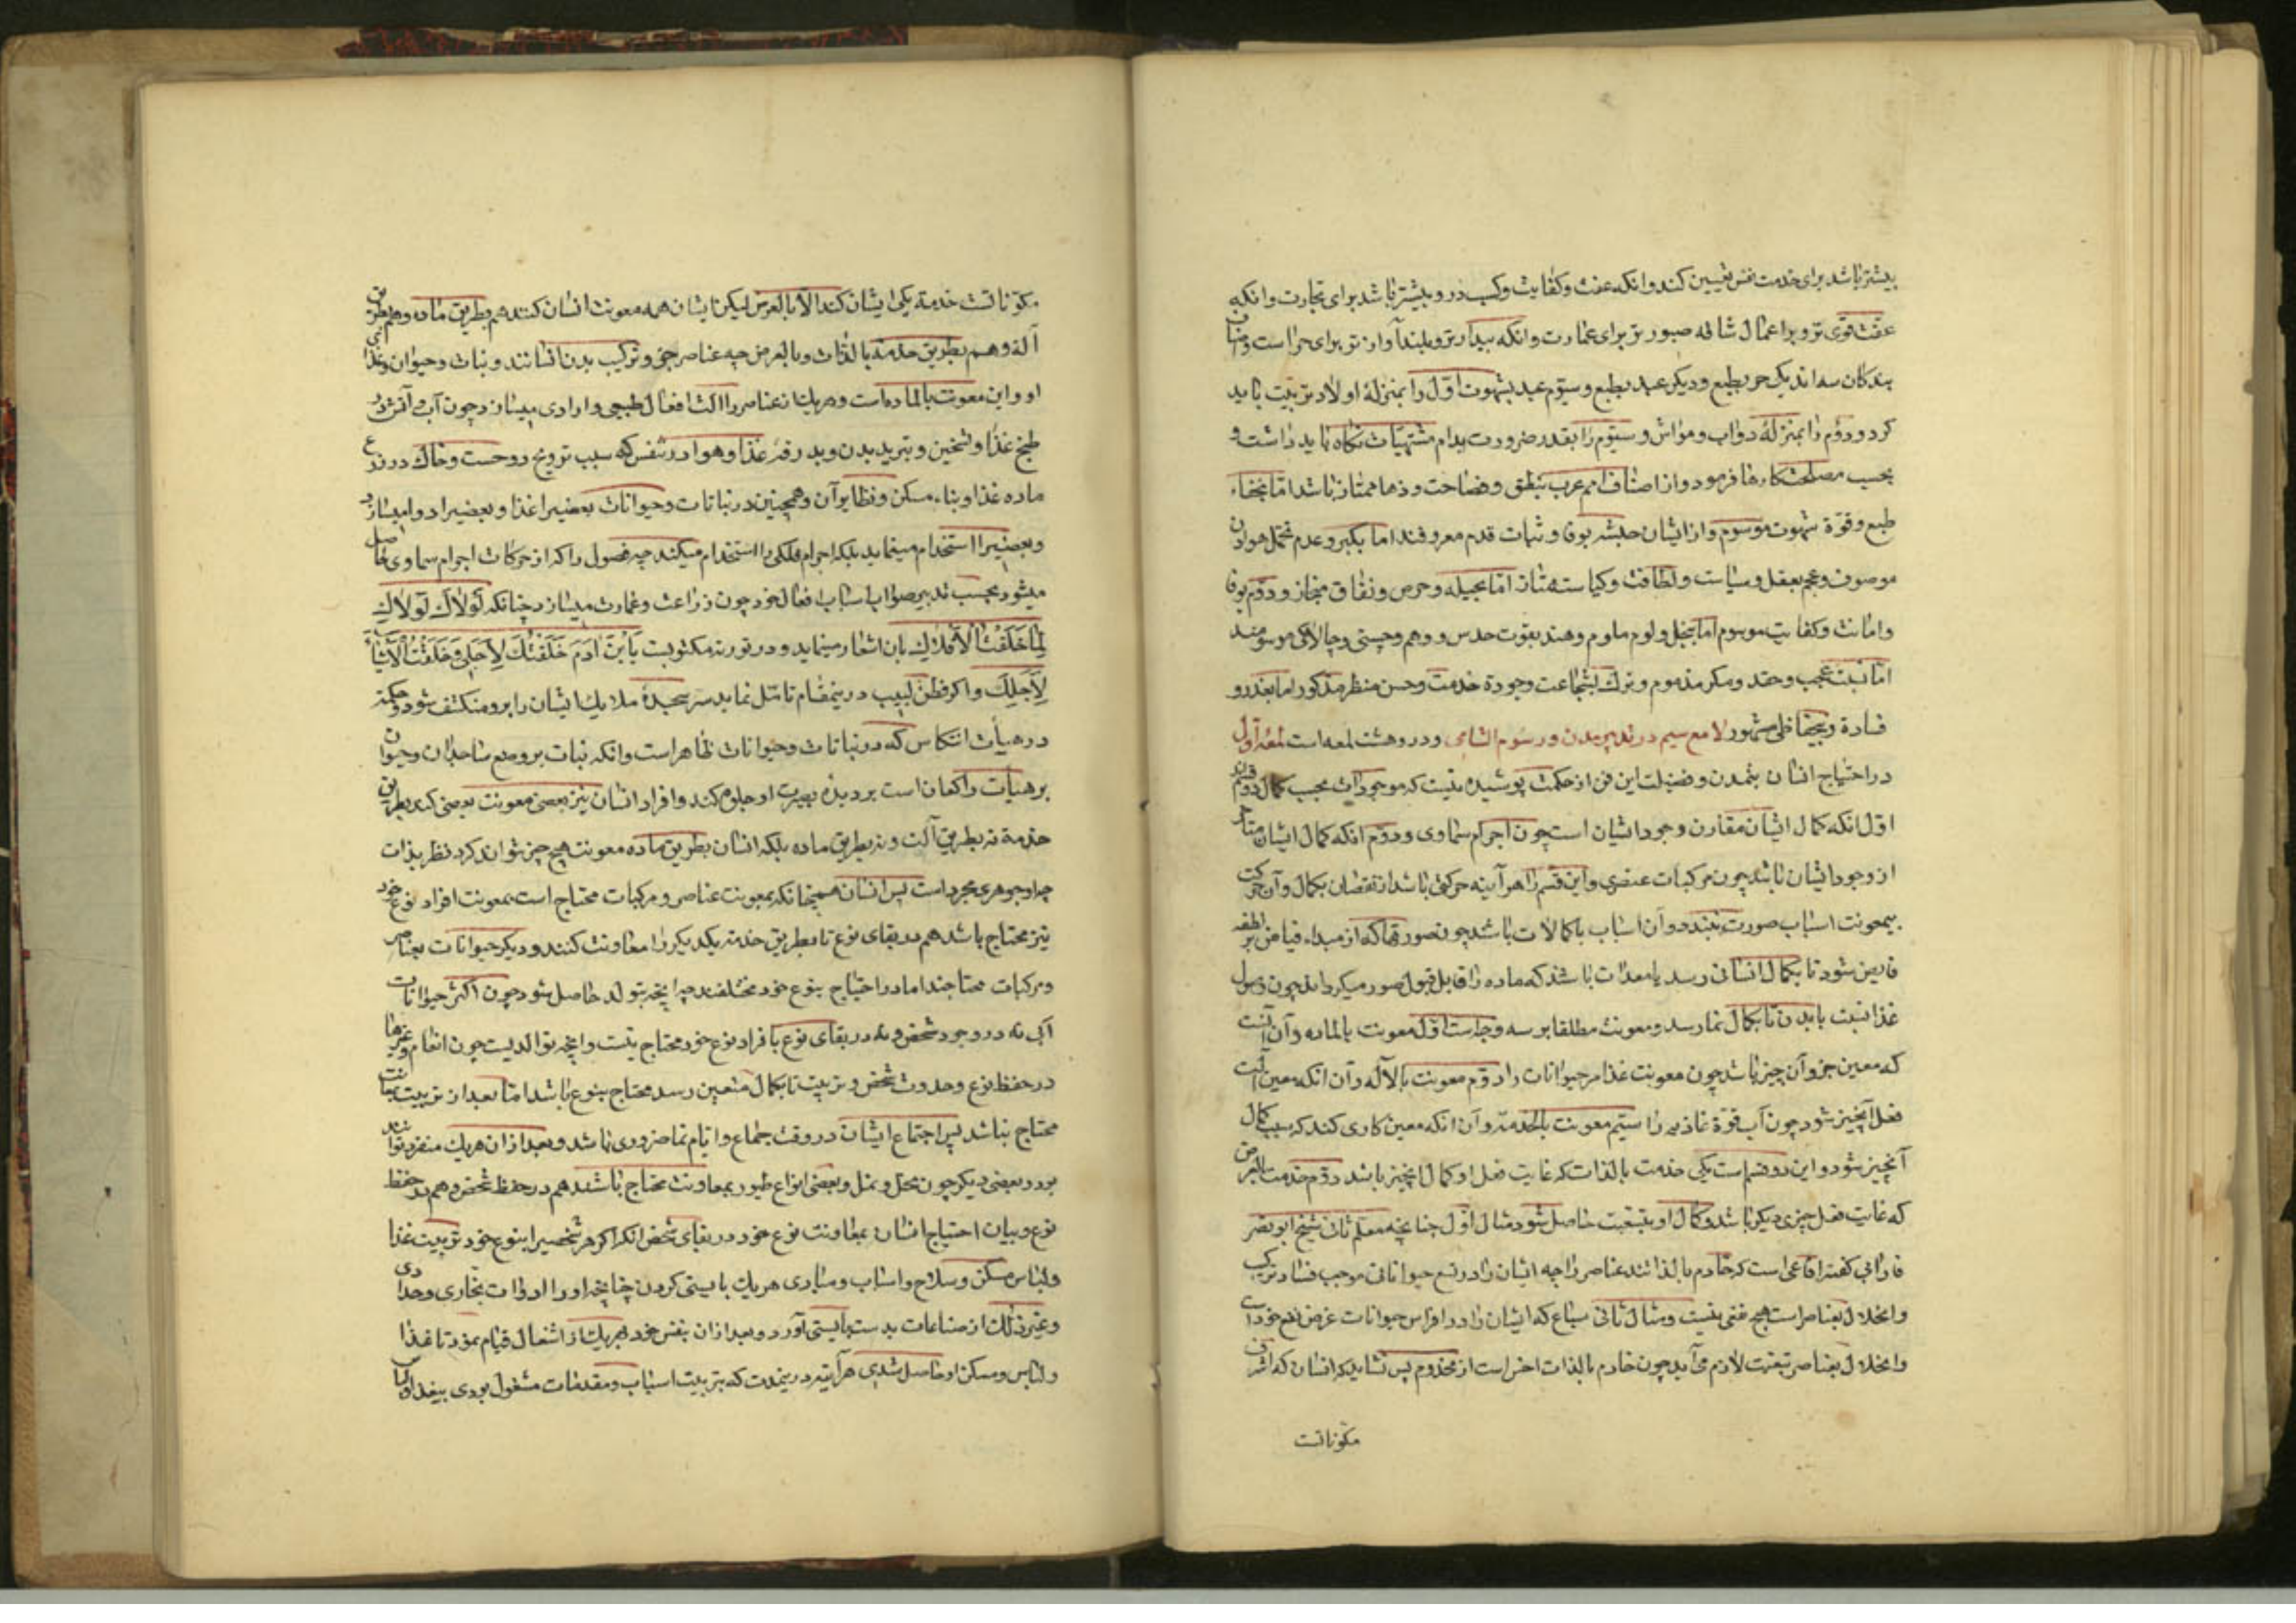 بیشتر باشد برای خدمت نفس تعیین کند و انکه عفت و کفایت و کسب در و بیشتر باشد برای تجارت و انکه
عفت قوی تر و بر اعمال شاقه صبور تر برای عمارت و انکه بیدار تر و بلند آواز تر برای حراست و اصناف
بندکان سه اند یکی حر بطبع و دیکر عبد بطبع و سیوم عبد بشهوت اول را بمنزلهٔ اولاد تربیت باید
کرد و دوم را بمنزلهٔ دواب و مواشی و سیوم را بقدر ضرورت بدام مشتهیات نکاه باید داشت و
بحسب مصلحت کارها فرمود و از اصناف امم عرب بنطق و فصاحت و دها ممتاز باشد اما بجفاء
طبع و قوة شهوت موسوم و از ایشان حبشه بوفا و ثبات قدم معروفند اما بکبر و عدم تحمل هوان
موصوف و عجم بعقل و سیاست و لطافت و کیاست ممتاز اما بحیله و حرص و نفاق مجاز و روم بوفا
و امانت و کفایت موسوم اما ببخل و لوم ملوم و هند بقوت حدس و وهم و چستی و چالاکی موسومند
اما نسبت عجب و حقد و مکر مذموم و ترک بشجاعت و جودة خدمت و حسن منظر مذکور اما بغدر و
قساوة و بیحفاظی مشهور لامع سیم در تدبیر مدن و رسوم الشاهی و در و هشت لمعه است لمعهٔ اول
در احتیاج انسان بتمدن و فضیلت این فن از حکمت پوشیده نیست که موجودات بحسب کمال دو قسم اند
اول انکه کمال ایشان مقارن وجود ایشان است چون اجرام سماوی و دوم انکه کمال ایشان متأخر
از وجود ایشان باشد چون مرکبات عنصری و این قسم را هر آینه حرکتی باشد از نقصان بکمال و آن حرکت
بیمعونت اسباب صورت نبندد و آن اسباب یا کمالات باشد چون صورتها که از مبداء فیاض بر نطفه
فایض شود تا بکمال انسانی رسد یا معدات باشد که ماده را قابل قبول صور میکرداند چون وصول
غذا نسبت بابدن تا بکمال نما رسد و معونت مطلقا بر سه وجه است اول معونت بالماده و آن آنست
که معین جزو آن چیز باشد چون معونت غذا مر حیوانات را دوم معونت بالآله و آن انکه معین آلت
فعل آنچیز شود چون آب قوة غاذیه را سیم معونت بالخدمة و آن انکه معین کاری کند که سبب کمال
آنچیز شود و این دو قسم است یکی خدمت بالذات که غایت فعل او کمال انچیز باشد دوم خدمت بالعرض
که غایت فعل چیزی دیکر باشد و کمال او بتبعیت حاصل شود مثال اول چنانچه معلم ثانی شیخ ابو نصر
فارابی کفته افاعی است که خادم بالذاتند عناصر را چه ایشان را در لسع حیوانات موجب فساد ترکیب
و انحلال بعناصر است هیچ نفعی نیست و مثال ثانی سباع که ایشان را در افراس حیوانات غرض نفع خود است
و انحلال بعناصر تبعیت لازم می آید چون خادم بالذات اخس است از مخدوم پس نشاید که انسان که اشرف
مکوناتست
مکوناتست خدمة یکی ایشان کند الا بالعرض لیکن ایشان همه معونت انسان کنند هم بطریق ماده و هم بطریق
آله و هم بطریق خدمة بالذات و بالعرض چه عناصر جزو ترکیب بدن انسانند و نبات و حیوان غذای
او و این معونت بالماده است و هر یک از عناصر را آلت افعال طبیعی و ارادی میسازد چون آب و آتش در
طبخ غذا و تسخین و تبرید بدن و بدرقهٔ غذا و هوا در تنفس که سبب ترویح روحست و خاک در زرع
ماده غذا و بناء مسکن و نظایر آن و همچنین در نباتات و حیوانات بعضیرا غذا و بعضیرا دوا میسازد
و بعضیرا استخدام مینماید بلکه اجرام فلکی را استخدام میکند چه فصول را که از حرکات اجرام سماوی حاصل
میشود بحسب تدبیر صواب اسباب افعال خود چون زراعت و عمارت میسازد چنانکه لَوْلَاكَ لَوْلَاكَ
لِمَا خَلَقْتُ الْاَفْلَاكَ بان اشعار مینماید و در توریة مکتوبست یَابْنَ اٰدَمَ خَلَقْتُكَ لِاَجْلِی وَخَلَقْتُ الْاَشْیَاءَ
لِاَجْلِكَ و اکر فطن لبیب درینمقام تامل نماید سر سجدهٔ ملایک ایشان را برو منکشف شود و حکمة
در هیأت انتکاس که در نباتات و حیوانات ظاهر است و انکه نبات بر وضع ساجدان و حیوان
بر هیأت راکعان است بر دیدهٔ بصیرت او جلوه کند و افراد انسان نیز بعضی معونت بعضی کند بطریق
خدمة نه بطریق آلت و نه بطریق ماده بلکه انسان بطریق ماده معونت هیچ چیز نتواند کرد نظر بذات
چه او جوهری مجرد است پس انسان همچنانکه بمعونت عناصر و مرکبات محتاج است بمعونت افراد نوع خود
نیز محتاج باشد هم در بقای نوع تا بطریق خدمة یکدیکر را معاونت کنند و دیکر حیوانات بعناصر
و مرکبات محتاجند اما در احتیاج بنوع خود مختلفند چه انچه بتولد حاصل شود چون اکثر حیوانات
آبی نه در وجود شخص و نه در بقای نوع بافراد نوع خود محتاج نیست و انچه توالدیست چون انعام و غیرها
در حفظ نوع و حدوث شخص و تربیت تا بکمال متعین رسد محتاج بنوع باشد اما بعد از تربیت بمعاونت
محتاج نباشد پس اجتماع ایشان در وقت جماع و ایام نما ضروری باشد و بعد از ان هر یک منفرد تواند
بود و بعضی دیکر چون نحل و نمل و بعضی انواع طیور بمعاونت محتاج باشند هم در حفظ شخص و هم در حفظ
نوع و بیان احتیاج انسان بمعاونت نوع خود در بقای شخص انکه اکر هر شخصیرا بنوع خود ترتیب غذا
و لباس و مسکن و سلاح و اسباب و مبادی هر یک بایستی کردن چنانچه او را ادوات نجاری و حدادی
و غیر ذلك از صناعات بدست بایستی آورد و بعد از ان بنفس خود بهر یک از اشغال قیام نمود تا غذا
و لباس و مسکن او حاصل شدی هر آینه درینمدت که بترتیب اسباب و مقدمات مشغول بودی بیغذا و لباس